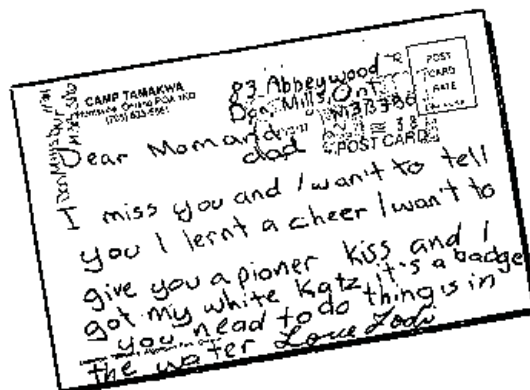 CAMP TAMAKWA
83 Abbeywood
Don Mills, Ont
POST
CARD
RATE
POST CARD
Dear Mom and
dad
I miss you and I wan't to tell
you I lernt a cheer I wan't to
give you a pioner kiss and I
got my white Katz it's a badge
you nead to do thing is in
the water Love Jodi